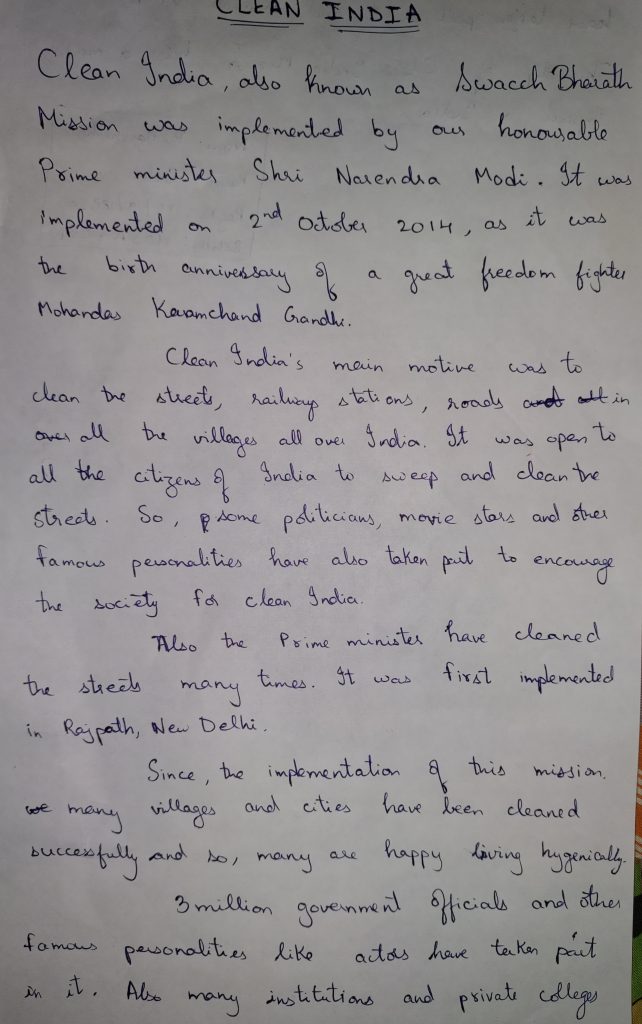 CLEAN INDIA
Clean India, also known as Swacch Bharath
Mission was implemented by our honourable
Prime minister Shri Narendra Modi. It was
implemented on 2nd October 2014, as it was
the birth anniversary of a great freedom fighter
Mohandas Karamchand Gandhi.
Clean India's main motive was to
clean the streets, railway stations, roads and all in
over all the villages all over India. It was open to
all the citizens of India to sweep and clean the
streets. So, some politicians, movie stars and other
famous personalities have also taken part to encourage
the society for clean India.
Also the Prime minister have cleaned
the streets many times. It was first implemented
in Rajpath, New Delhi.
Since, the implementation of this mission.
we many villages and cities have been cleaned
successfully and so, many are happy living hygenically.
3 million government officials and other
famous personalities like actors have taken part
in it. Also many institutions and private colleges